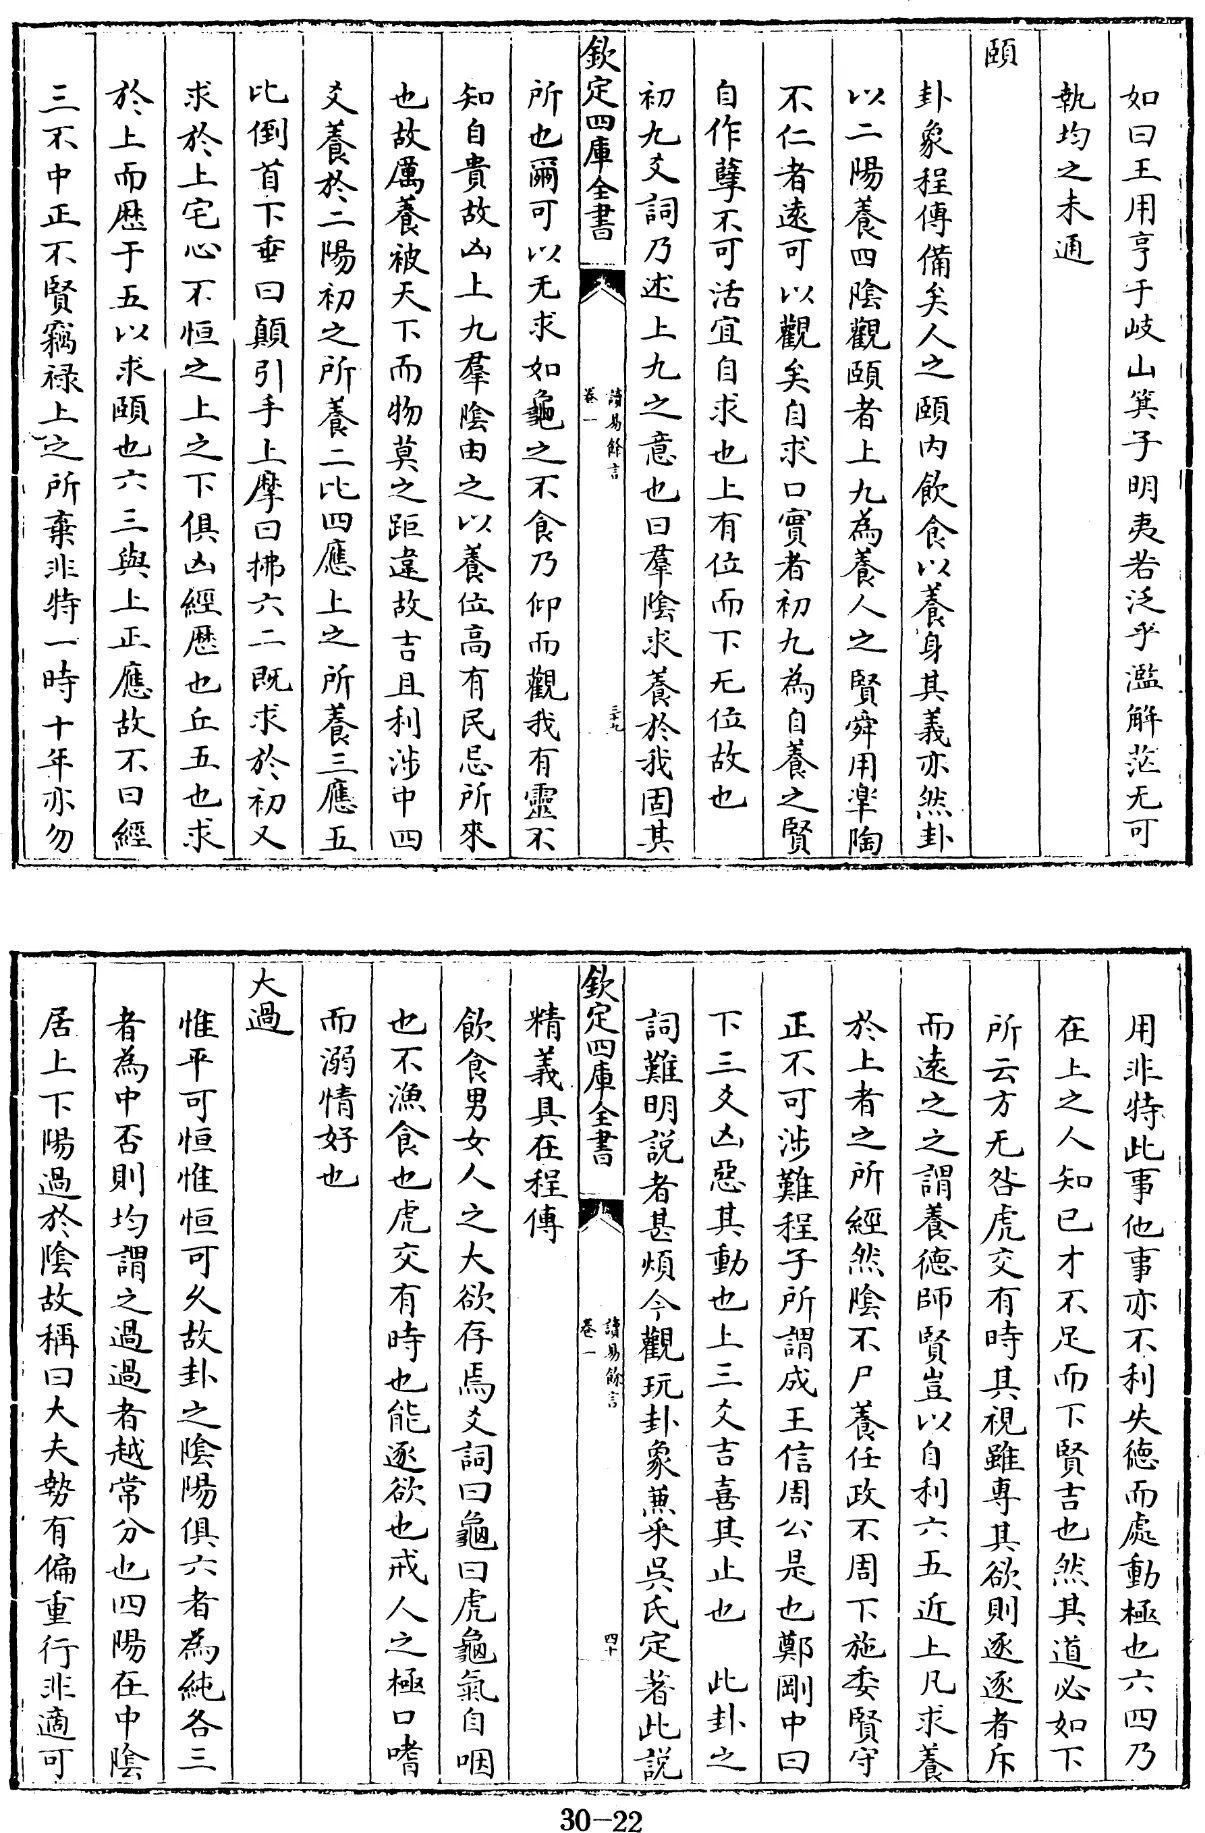 如曰王用亨于岐山箕子明夷若泛乎濫解茫无可
執均之未通
頤
卦象程傳備矣人之頤内飲食以養身其義亦然卦
以二陽養四陰觀頤者上九為養人之賢舜用皐陶
不仁者遠可以觀矣自求口實者初九為自養之賢
自作孽不可活宜自求也上有位而下无位故也
初九爻詞乃述上九之意也曰羣陰求養於我固其
欽定四庫全書
讀易餘言
卷一
三十九
所也爾可以无求如龜之不食乃仰而觀我有靈不
知自貴故凶上九羣陰由之以養位高有民忌所來
也故厲養被天下而物莫之距違故吉且利涉中四
爻養於二陽初之所養二比四應上之所養三應五
比倒首下垂曰顛引手上摩曰拂六二既求於初又
求於上宅心不恒之上之下俱凶經歷也丘五也求
於上而歷于五以求頤也六三與上正應故不曰經
三不中正不賢竊禄上之所棄非特一時十年亦勿
用非特此事他事亦不利失德而處動極也六四乃
在上之人知已才不足而下賢吉也然其道必如下
所云方无咎虎交有時其視雖專其欲則逐逐者斥
而遠之之謂養德師賢豈以自利六五近上凡求養
於上者之所經然陰不尸養任政不周下施委賢守
正不可涉難程子所謂成王信周公是也鄭剛中曰
下三爻凶惡其動也上三爻吉喜其止也　此卦之
詞難明説者甚煩今觀玩卦象蕪采吳氏定著此説
欽定四庫全書
讀易餘言
卷一
四十
精義具在程傳
飲食男女人之大欲存焉爻詞曰龜曰虎龜氣自咽
也不漁食也虎交有時也能逐欲也戒人之極口嗜
而溺情好也
大過
惟平可恒惟恒可久故卦之陰陽俱六者為純各三
者為中否則均謂之過過者越常分也四陽在中陰
居上下陽過於陰故稱曰大夫勢有偏重行非適可
30-22